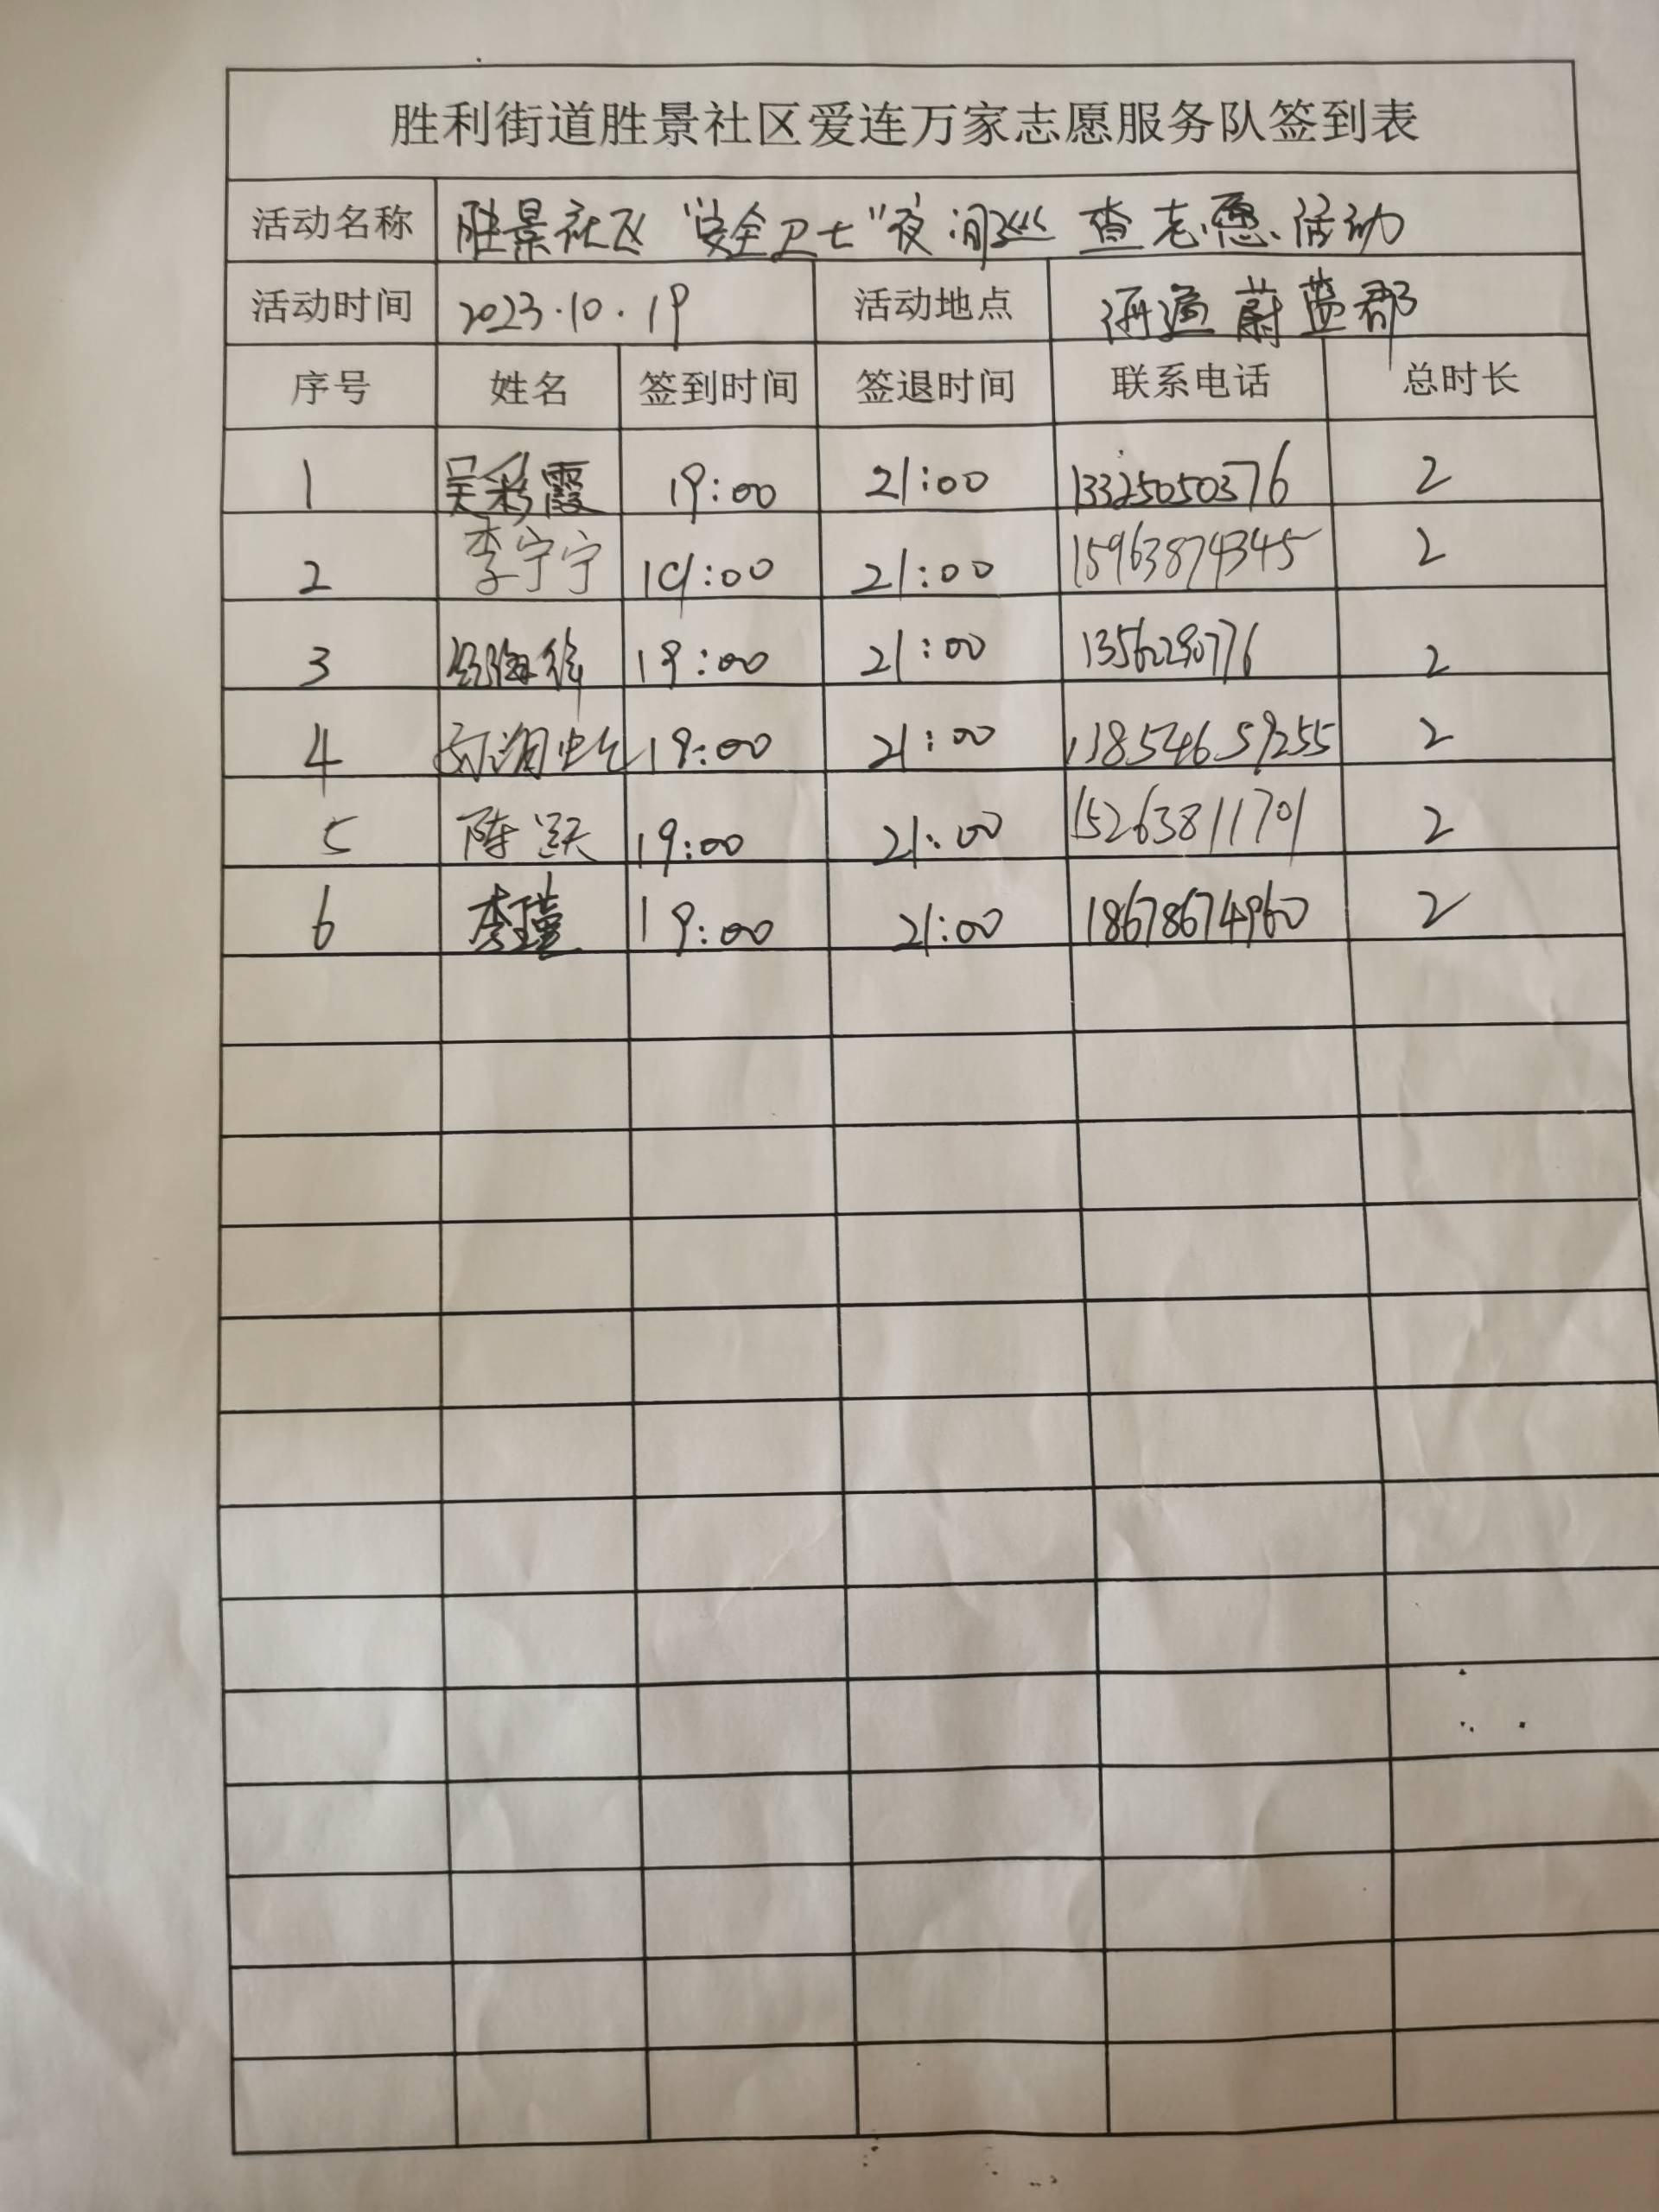 胜利街道胜景社区爱连万家志愿服务队签到表
活动名称 胜景社区“安全卫士”夜间巡查志愿活动
活动时间 2023.10.19 活动地点 海通蔚蓝郡
序号 姓名 签到时间 签退时间 联系电话 总时长
1 吴彩霞 19:00 21:00 13325050376 2
2 李宁宁 19:00 21:00 15963874345 2
3 19:00 21:00 2
4 19:00 21:00 2
5 陈跃 19:00 21:00 15263811701 2
6 李瑾 19:00 21:00 18678674960 2